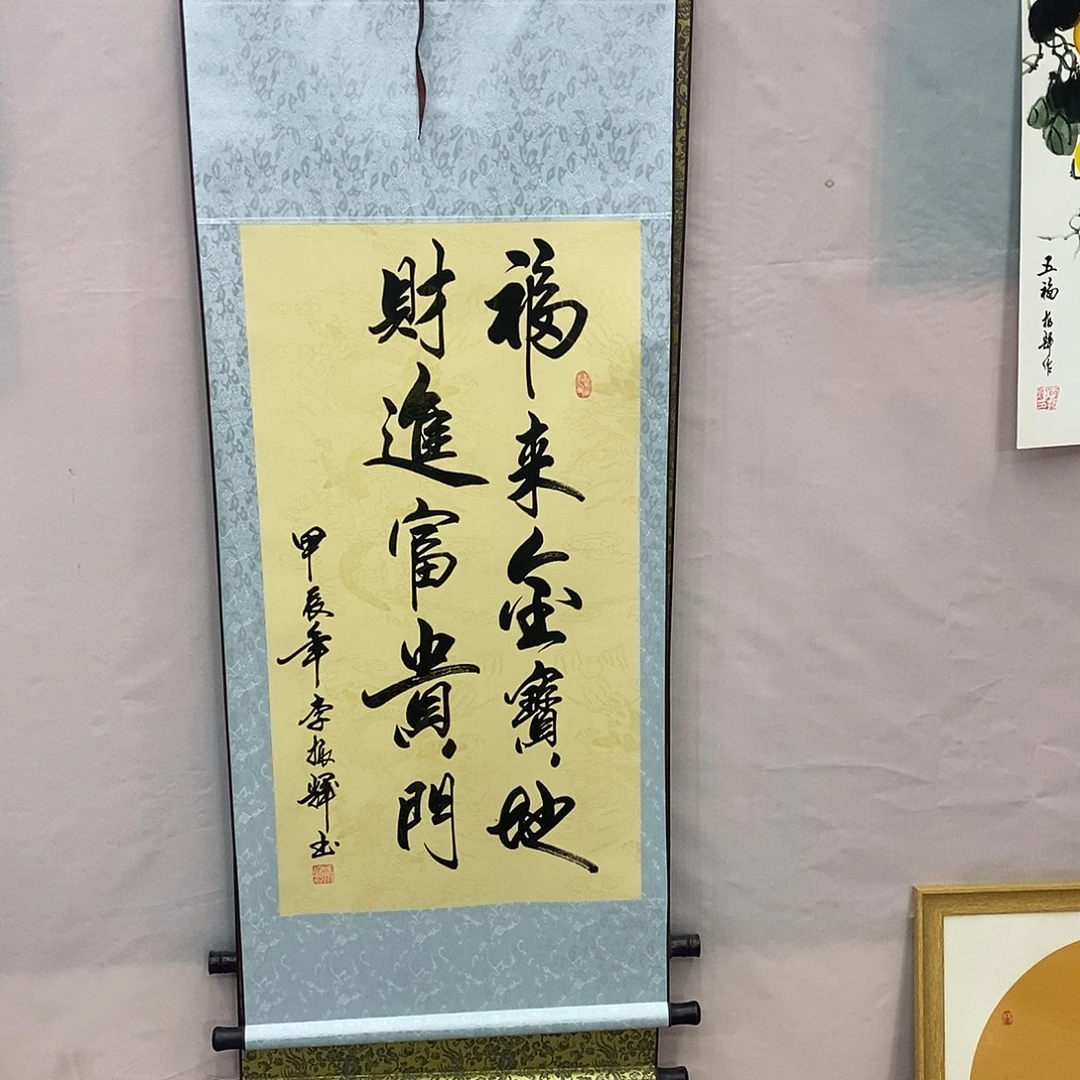 福来金寳地
財進富貴門
甲辰年李振輝书
五福 振輝作